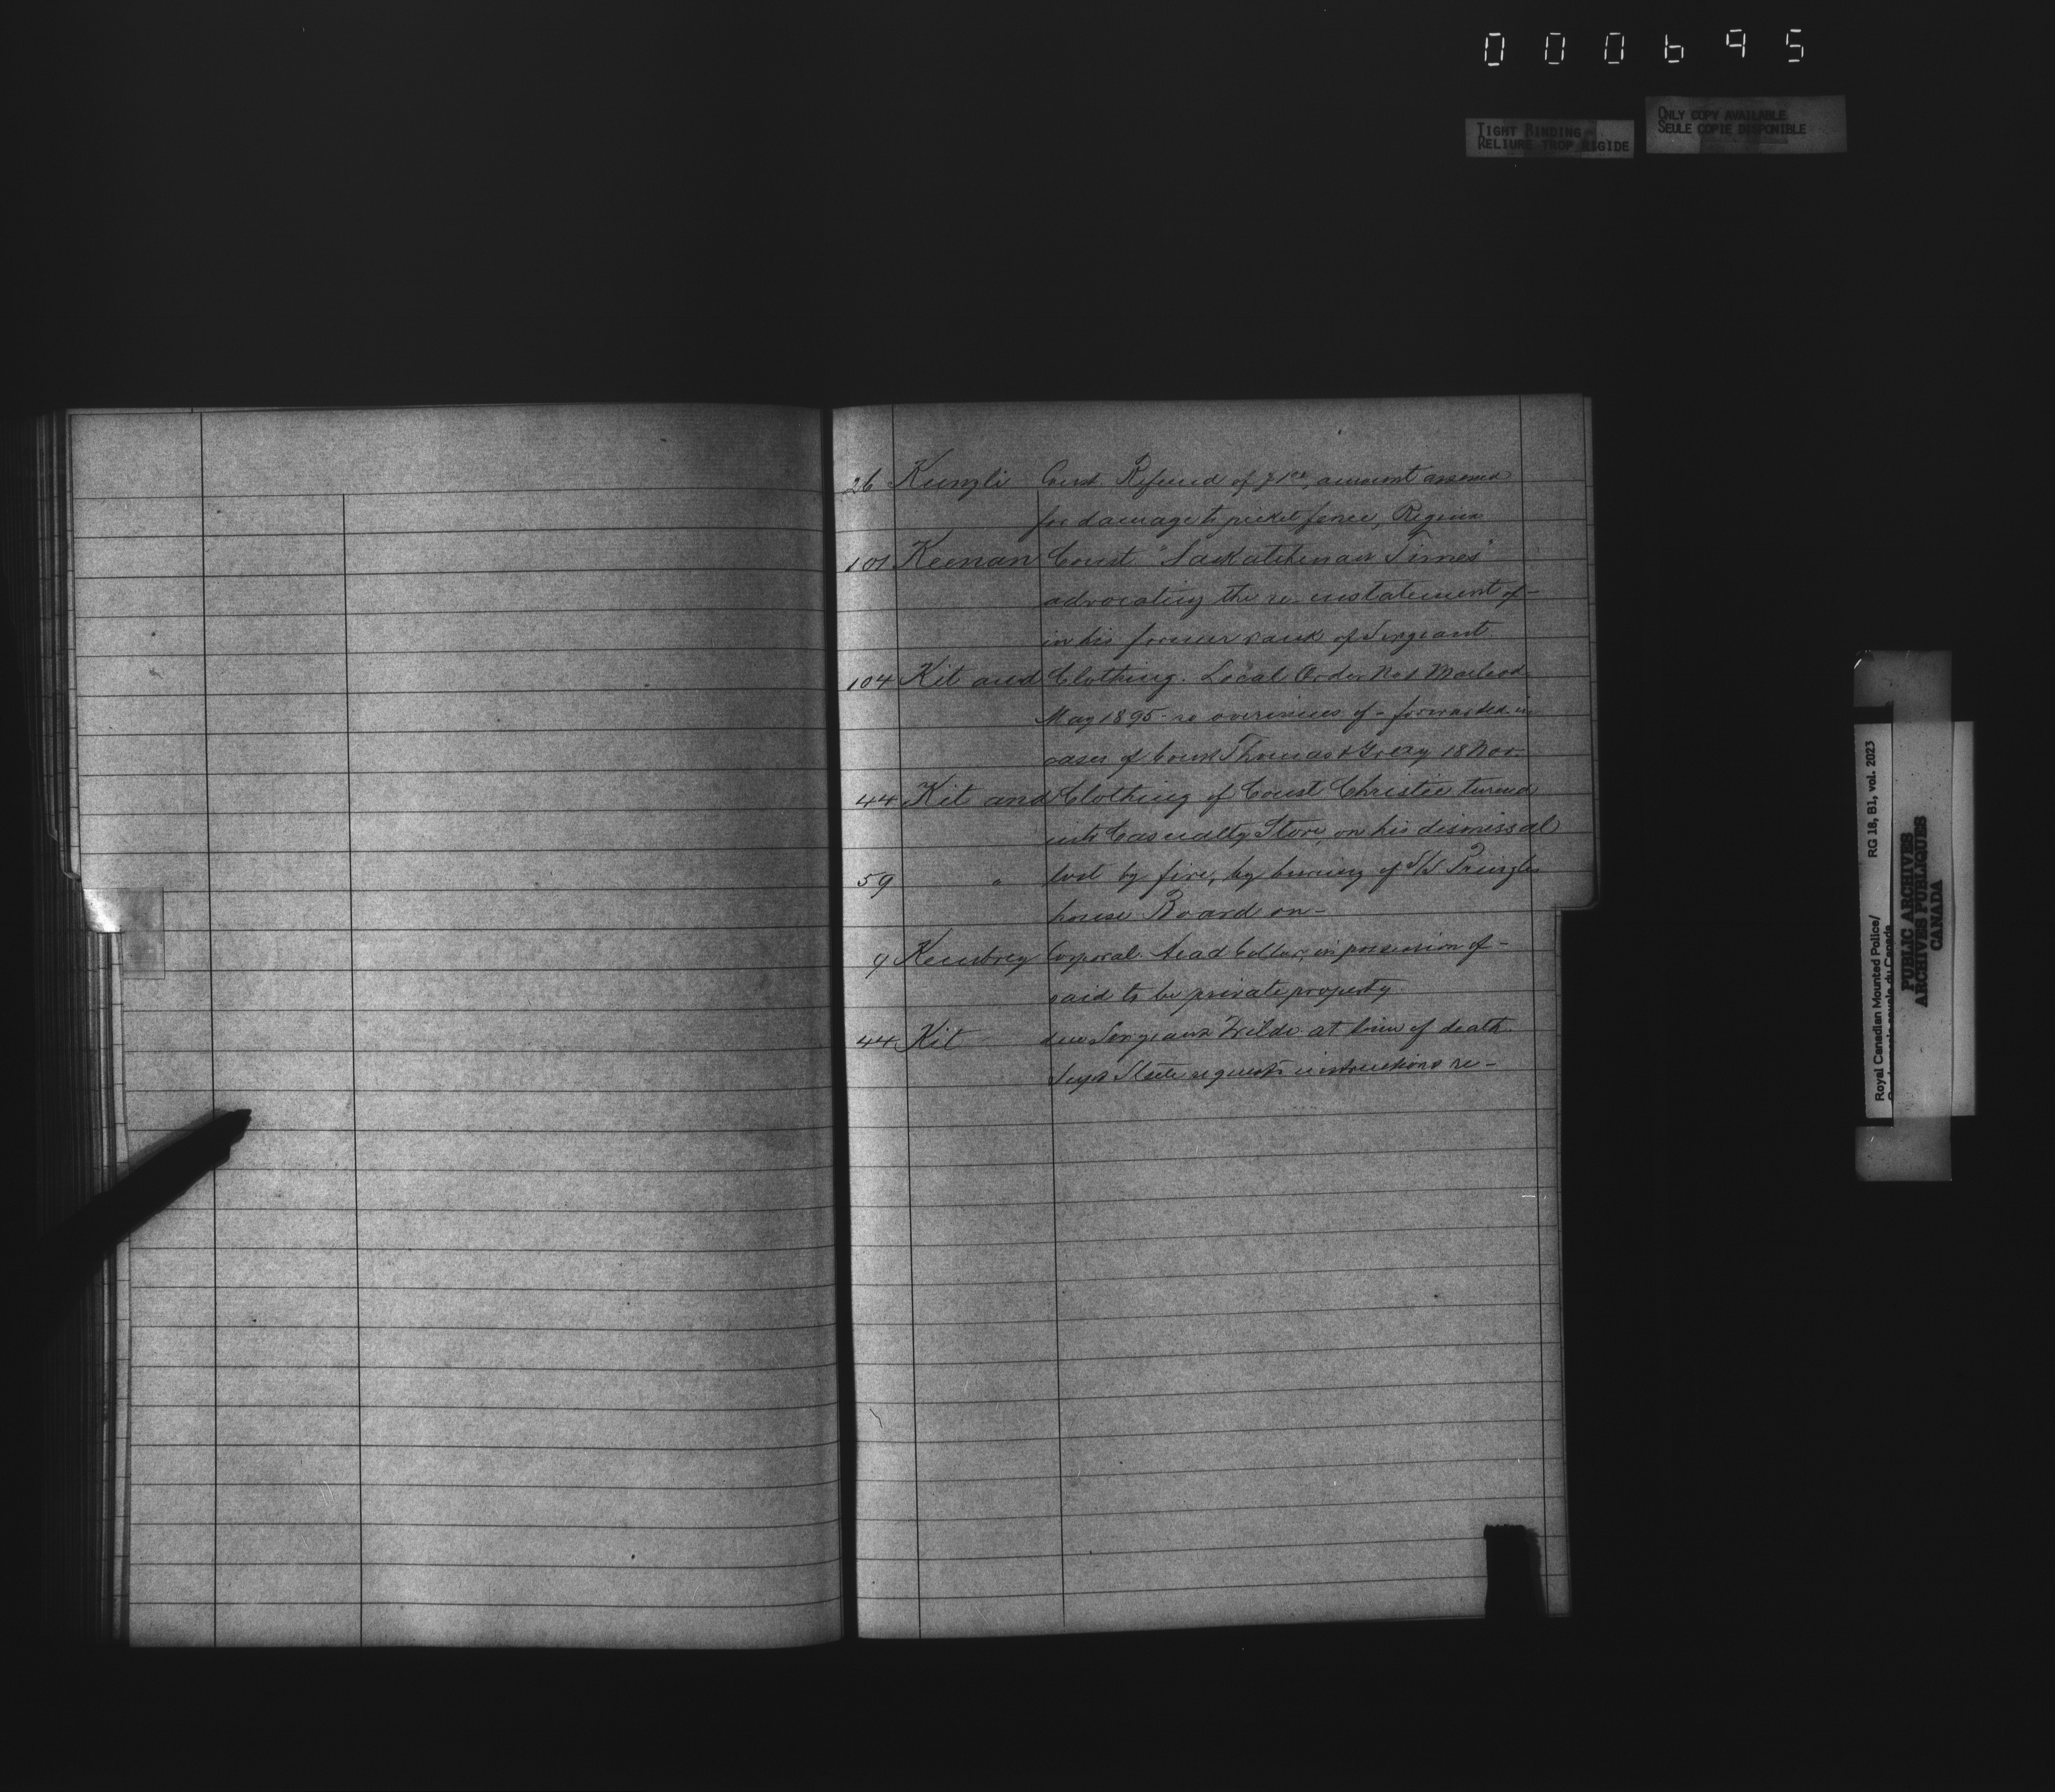 000695
TIGHT BINDING
RELIURE TROP RIGIDE
ONLY COPY AVAILABLE
SEULE COPIE DISPONIBLE
26 Kunzli Const. Refund of $1.00, amount assessed
for damage to picket fence, Regina
101 Keenan Const. "Saskatchewan Times"
advocating the re-instatement of -
in his former rank of Sergeant
104 Kit and Clothing. Local Order No 1 Macleod
May 1895 - re overissues of - forwarded in
cases of Const Thomas & 18 Nov.
44 Kit and Clothing of Const Christie turned
into Casualty Store, on his dismissal
59 " lost by fire, by burning of S/S Pringle
house Board on -
9 Corporal. Head Collar, in possession of -
said to be private property
44 Kit due Sergeant Wilde at time of death.
Supt Steele requests instructions re -
Royal Canadian Mounted Police/
RG 18, B1, vol. 2023
Gendarmerie royale du Canada
PUBLIC ARCHIVES
ARCHIVES PUBLIQUES
CANADA